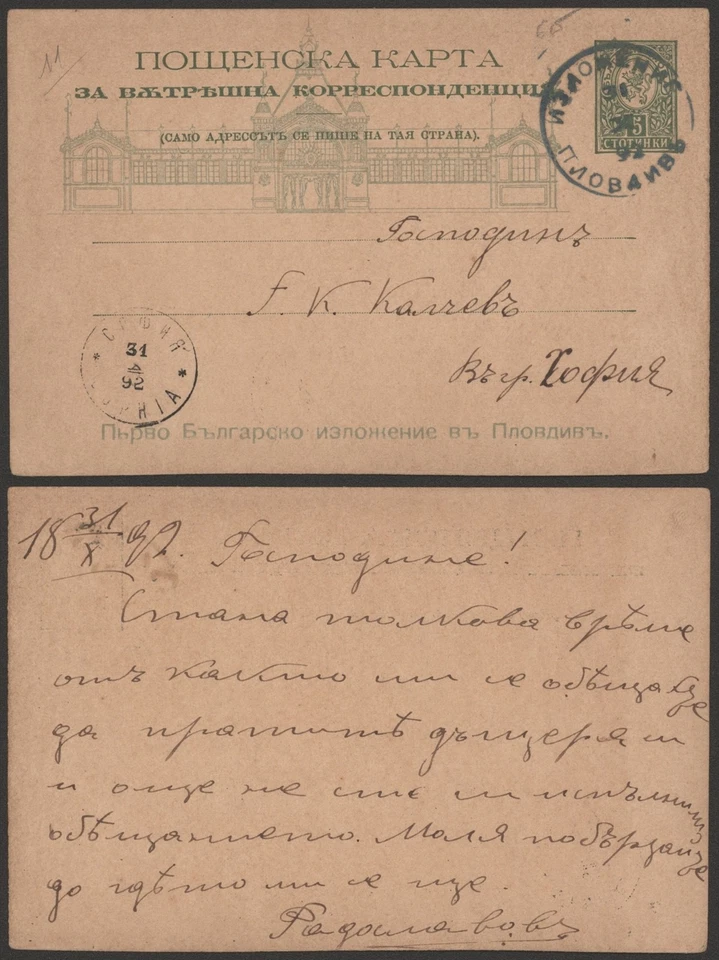 11
ПОЩЕНСКА КАРТА
ЗА ВѪТРѢШНА КОРРЕСПОНДЕНЦИЯ
(САМО АДРЕССЪТЪ СЕ ПИШЕ НА ТАЯ СТРАНА).
ИЗЛОЖЕНИЕ
ПЛОВДИВЪ
5
СТОТИНКИ
Господинъ
К. Калчевъ
Въ гр. София
СОФИЯ
31
92
SOPHIA
Първо Българско изложение въ Пловдивъ.
18 31/X 92. Господине!
Стана толкова врѣме
отъ както ми се обѣщахте
да пратитѣ дъщеря ми
и още не сте ми испълнили
обѣщанието. Моля побързайте
до гдѣто ми се ще.
Радославовъ